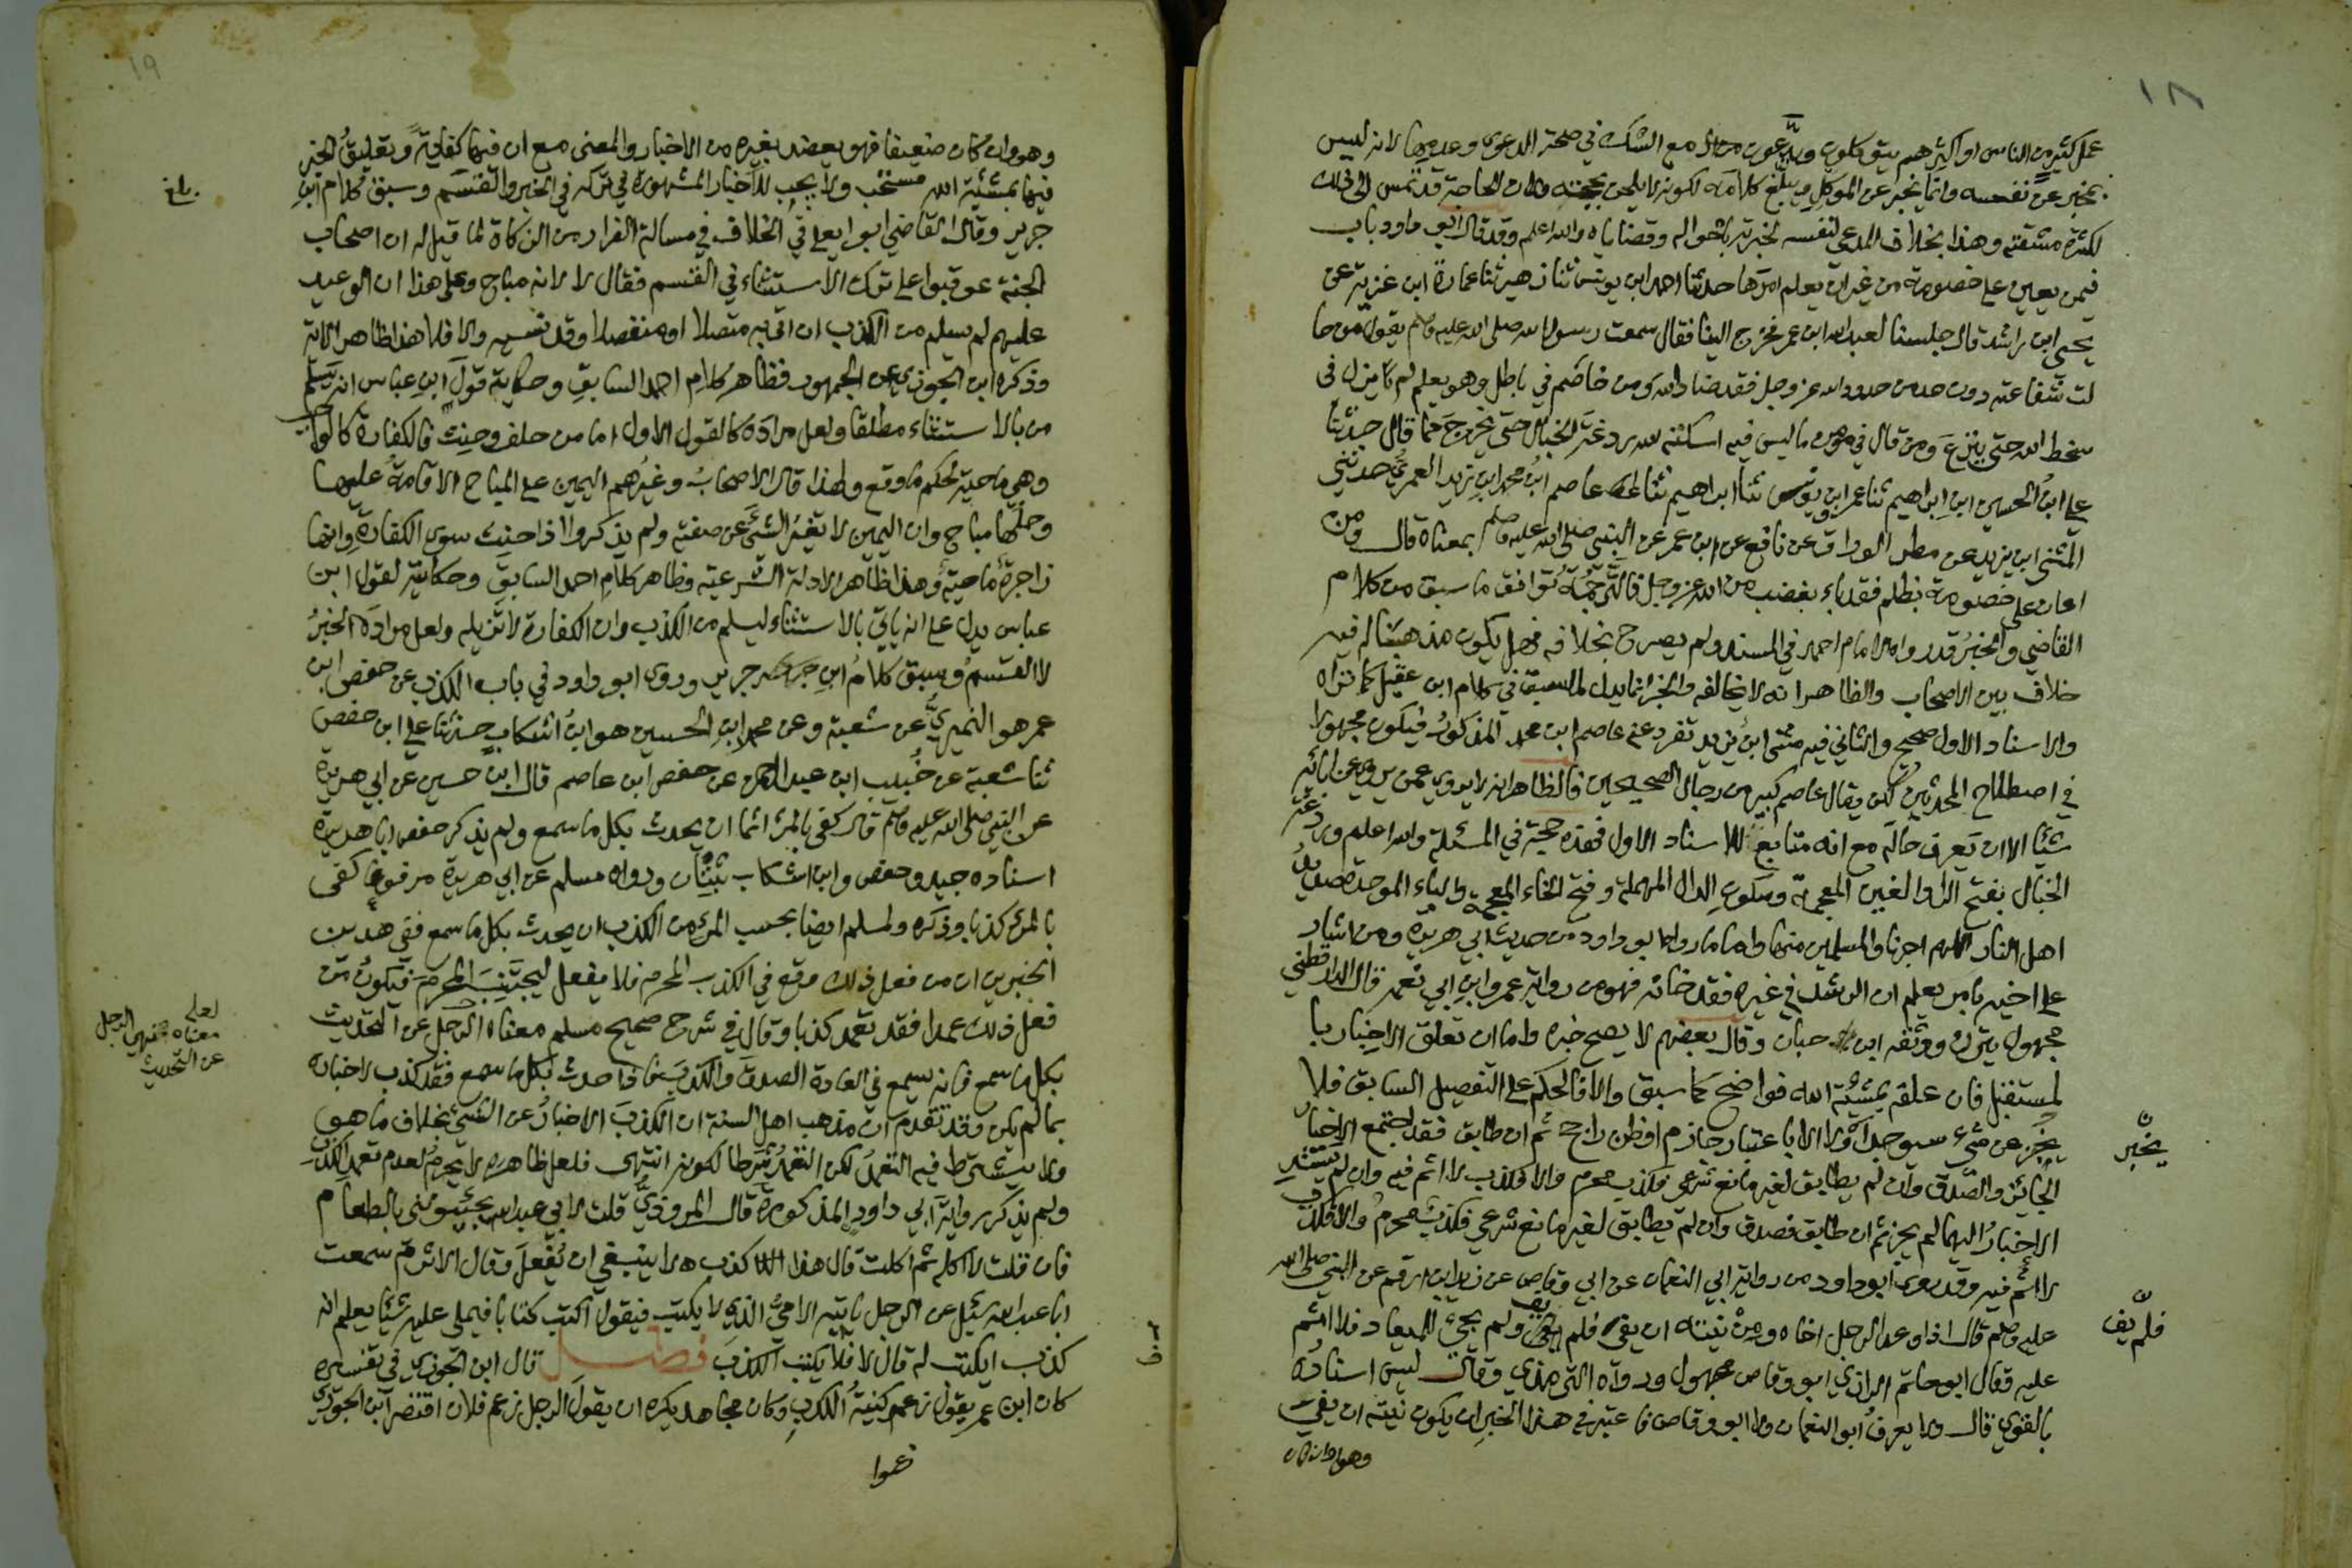 ١٨
عمل كثير من الناس او اكثرهم يتوكلون ويدّعون مع الشك في صحة الدعوى وعدمها لانه ليس
بمخبر عن نفسه وانما يخبر عن الموكل ويبلغ كلامه لكونه لا يلحن بحجته ولان الحاجة قد تمس الى ذلك
لكثرة مشقته وهذا بخلاف المدعي لنفسه لخبرته باحواله وقضاياه والله اعلم وقد قال ابو داود باب
فيمن يعين على خصومة من غير ان يعلم امرها حدثنا احمد ابن يونس ثنا زهير ثنا عمارة ابن غزية عن
يحيى ابن راشد قال جلسنا لعبد الله ابن عمر فخرج الينا فقال سمعت رسول الله صلى الله عليه وسلم يقول من حا
لت شفاعته دون حد من حدود الله عز وجل فقد ضاد الله ومن خاصم في باطل وهو يعلم لم يزل في
سخط الله حتى ينزع ومن قال في مؤمن ما ليس فيه اسكنه الله ردغة الخبال حتى يخرج مما قال حدثنا
علي ابن الحسين ابن ابراهيم ثنا عمر ابن يونس ثنا ابراهيم ثنا عاصم ابن محمد ابن زيد العمري حدثني
المثنى ابن يزيد عن مطر الوراق عن نافع عن ابن عمر عن النبي صلى الله عليه وسلم بمعناه قال ومن
اعان على خصومة بظلم فقد باء بغضب من الله عز وجل فالترجمة توافق ما سبق من كلام
القاضي والخبر قد رواه الامام احمد في المسند ولم يصرح بخلافه فهل يكون مذهبا له فيه
خلاف بين الاصحاب والظاهر انه لا يخالفه والخبر انما يدل لما سبق في كلام ابن عقيل كما تراه
والاسناد الاول صحيح والثاني فيه مثنى ابن يزيد تفرد عنه عاصم ابن محمد المذكور فيكون مجهولا
في اصطلاح المحدثين لكن يقال عاصم كبير من رجال الصحيحين فالظاهر انه لا يروي عمن يروي عن ابائه
شيئا الا ان يعرف حاله مع انه متابع للاسناد الاول فهذه حجة في المسئلة والله اعلم وردغة
الخبال بفتح الراء والغين المعجمة وسكون الدال المهملة وفتح الخاء المعجمة والباء الموحدة صديد
اهل النار اللهم اجرنا والمسلمين منها واما ما رواه ابو داود من حديث ابي هريرة ومن اشار
على اخيه بامر يعلم ان الرشد في غيره فقد خانه فهو من رواية عمرو ابن ابي نعمة قال الدارقطني
مجهول يترك ووثقه ابن حبان وقال بعضهم لا يصح خبره واما ان تعلق الاخبار با
لمستقبل فان علقه بمشيئة الله فواضح كما سبق والا فالحكم على التفصيل السابق فلا
يخبر عن شيء سيوجد او لا الا باعتبار جازم او ظن راجح ثم ان طابق فقد اجتمع الاخبار
الجائز والصدق وان لم يطابق لغير مانع شرعي فكذب محرم والا فكذب لا اثم فيه وان لم يستند
الاخبار اليهما لم يجز ثم ان طابق فصدق وان لم يطابق لغير مانع شرعي فكذب محرم والا فكذب
لا اثم فيه وقد روى ابو داود من رواية ابي النعمان عن ابي وقاص عن زيد ابن ارقم عن النبي صلى الله
عليه وسلم قال اذا وعد الرجل اخاه ومن نيته ان يفي فلم يف ولم يجئ للميعاد فلا اثم
عليه فقال ابو حاتم الرازي ابو وقاص مجهول ورواه الترمذي وقال ليس اسناده
بالقوي قال ولا يعرف ابو النعمان ولا ابو وقاص فاعتبر في هذا الخبر ان يكون نيته ان يفي
وهو وان كان
يخبر
فلم يف
١٩
وهو وان كان ضعيفا فهو يعضد بغيره من الاخبار والمعنى مع ان فيها كفاية وتعليق الخبر
فيها بمشيئة الله مستحب ولا يجب للاخبار المشهورة في تركه في الخبر والقسم وسبق كلام ابن
جرير وقال القاضي ابو يعلى في الخلاف في مسالة الفرار من الزكاة لما قيل له ان اصحاب
الجنة عوقبوا على ترك الاستثناء في القسم فقال لا لانه مباح وعلى هذا ان الوعيد
عليهم لم يسلم من الكذب ان اتى به متصلا او منفصلا وقد نسيه والا فلا هذا ظاهر الاية
وذكره ابن الجوزي عن الجمهور فظاهر كلام احمد السابق وحكاية قول ابن عباس انه يسلم
من بالاستثناء مطلقا ولعل مراده كالقول الاول اما من حلف وحنث فالكفارة كالواجب
وهي ماحية لحكم ما وقع ولهذا قال الاصحاب وغيرهم اليمين على المباح الاقامة عليها
وحلها مباح وان اليمين لا تغير الشيء عن صفته ولم يذكروا اذا حنث سوى الكفارة وانها
زاجرة ماحية وهذا ظاهر الادلة الشرعية وظاهر كلام احمد السابق وحكايته لقول ابن
عباس يدل على انه ياتي بالاستثناء ليسلم من الكذب وان الكفارة لا تزيله ولعل مراده الخبر
لا القسم وسبق كلام ابن جرير وروى ابو داود في باب الكذب عن حفص ابن
عمر هو النميري عن شعبة وعن محمد ابن الحسين هو ابن اشكاب حدثنا علي ابن حفص
ثنا شعبة عن خبيب ابن عبد الرحمن عن حفص ابن عاصم قال ابن حسين عن ابي هريرة
عن النبي صلى الله عليه وسلم قال كفى بالمرء اثما ان يحدث بكل ما سمع ولم يذكر حفص ابا هريرة
اسناده جيد وحفص وابن اشكاب ثبتان ورواه مسلم عن ابي هريرة مرفوعا كفى
بالمرء كذبا وذكره ولمسلم ايضا بحسب المرء من الكذب ان يحدث بكل ما سمع ففي هذين
الخبرين ان من فعل ذلك وقع في الكذب المحرم فلا يفعل ليجتنب المحرم فيكون من
فعل ذلك عمدا فقد تعمد كذبا وقال في شرح صحيح مسلم معناه الرجل عن التحديث
بكل ما سمع فانه يسمع في العادة الصدق والكذب فاذا حدث بكل ما سمع فقد كذب لاخباره
بما لم يكن وقد تقدم ان مذهب اهل السنة ان الكذب الاخبار عن الشيء بخلاف ما هو
ولا يشترط فيه التعمد لكن التعمد شرطا لكونه انتهى فلعل ظاهره لا يحرم لعدم تعمد الكذب
ولم يذكر رواية ابي داود المذكورة قال المروذي قلت لابي عبد الله يجيئونني بالطعام
فان قلت لا اكله ثم اكلت قال هذا كذب لا ينبغي ان يفعل وقال الاثرم سمعت
ابا عبد الله سئل عن الرجل ياتيه الامي الذي لا يكتب فيقول اكتب كتابا فيملي عليه شيئا يعلم انه
كذب ايكتب له قال لا فلا يكتب الكذب فصل قال ابن الجوزي في تفسيره
كان ابن عمر يقول زعم كنية الكذب وكان مجاهد يكره ان يقول الرجل زعم فلان اقتصر ابن الجوزي
زعموا
بلغ
لعله
معناه نهي الرجل
عن التحديث